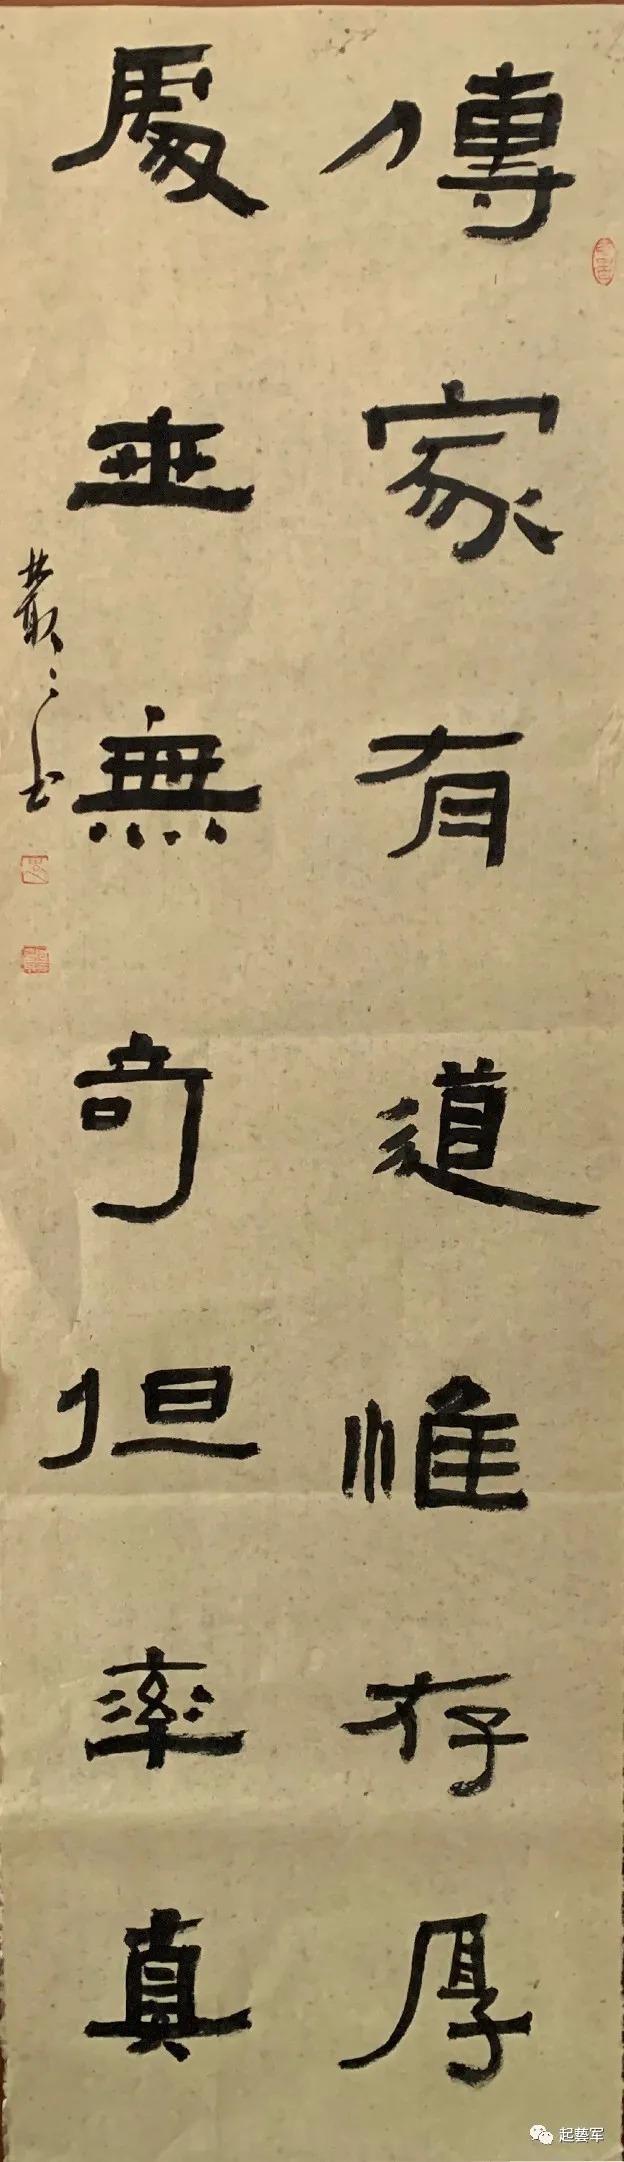 傳家有道惟存厚
處世無奇但率真
起藝军